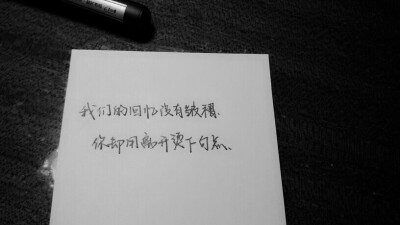 我们的回忆没有皱褶、
你却用离开烫下句点、